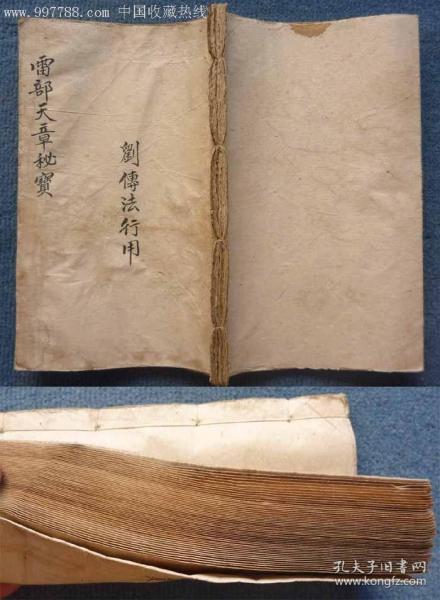 www.997788.com 中国收藏热线
雷部天章秘寶
劉傳法行用
孔夫子旧书网
www.kongfz.com